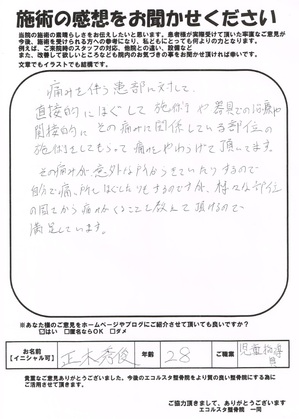 施術の感想をお聞かせください
当院の施術の素晴らしさをお伝えしたいと思います。患者様が実際受けて頂いた率直なご意見が
今後、施術を受けられる方への参考になり、私どもにとっても何よりの力となります。
例えば、ご来院時のスタッフの対応、他院との違い、設備など
また、改善して欲しいところなども院内のお気づきの事をお聞かせ頂ければ幸いです。
文章でもイラストでも結構です。
痛みを伴う患部に対して、
直接的にほぐして施術や器具での治療や
間接的にその痛みに関係している部位の
施術をしてもらって痛みをやわらげて頂いてます。
その痛みが意外な所からきていたりするので
自分で痛い所しほぐしたりもするのですが、様々な部位
の因から痛みがくることも教えて頂けるので
満足しています。
※あなた様のご意見をホームページやブログにご紹介させて頂いても良いですか?
□はい □匿名ならOK □ダメ
お名前
【イニシャル可】 正木秀俊 年齢 28 ご職業 児童指導員
貴重なご意見ありがとうございました。今後のエコルスタ整骨院をより質の良い整骨院にする為に
ご活用させて頂きます。
ご協力頂きまして、ありがとうございます
エコルスタ整骨院 一同